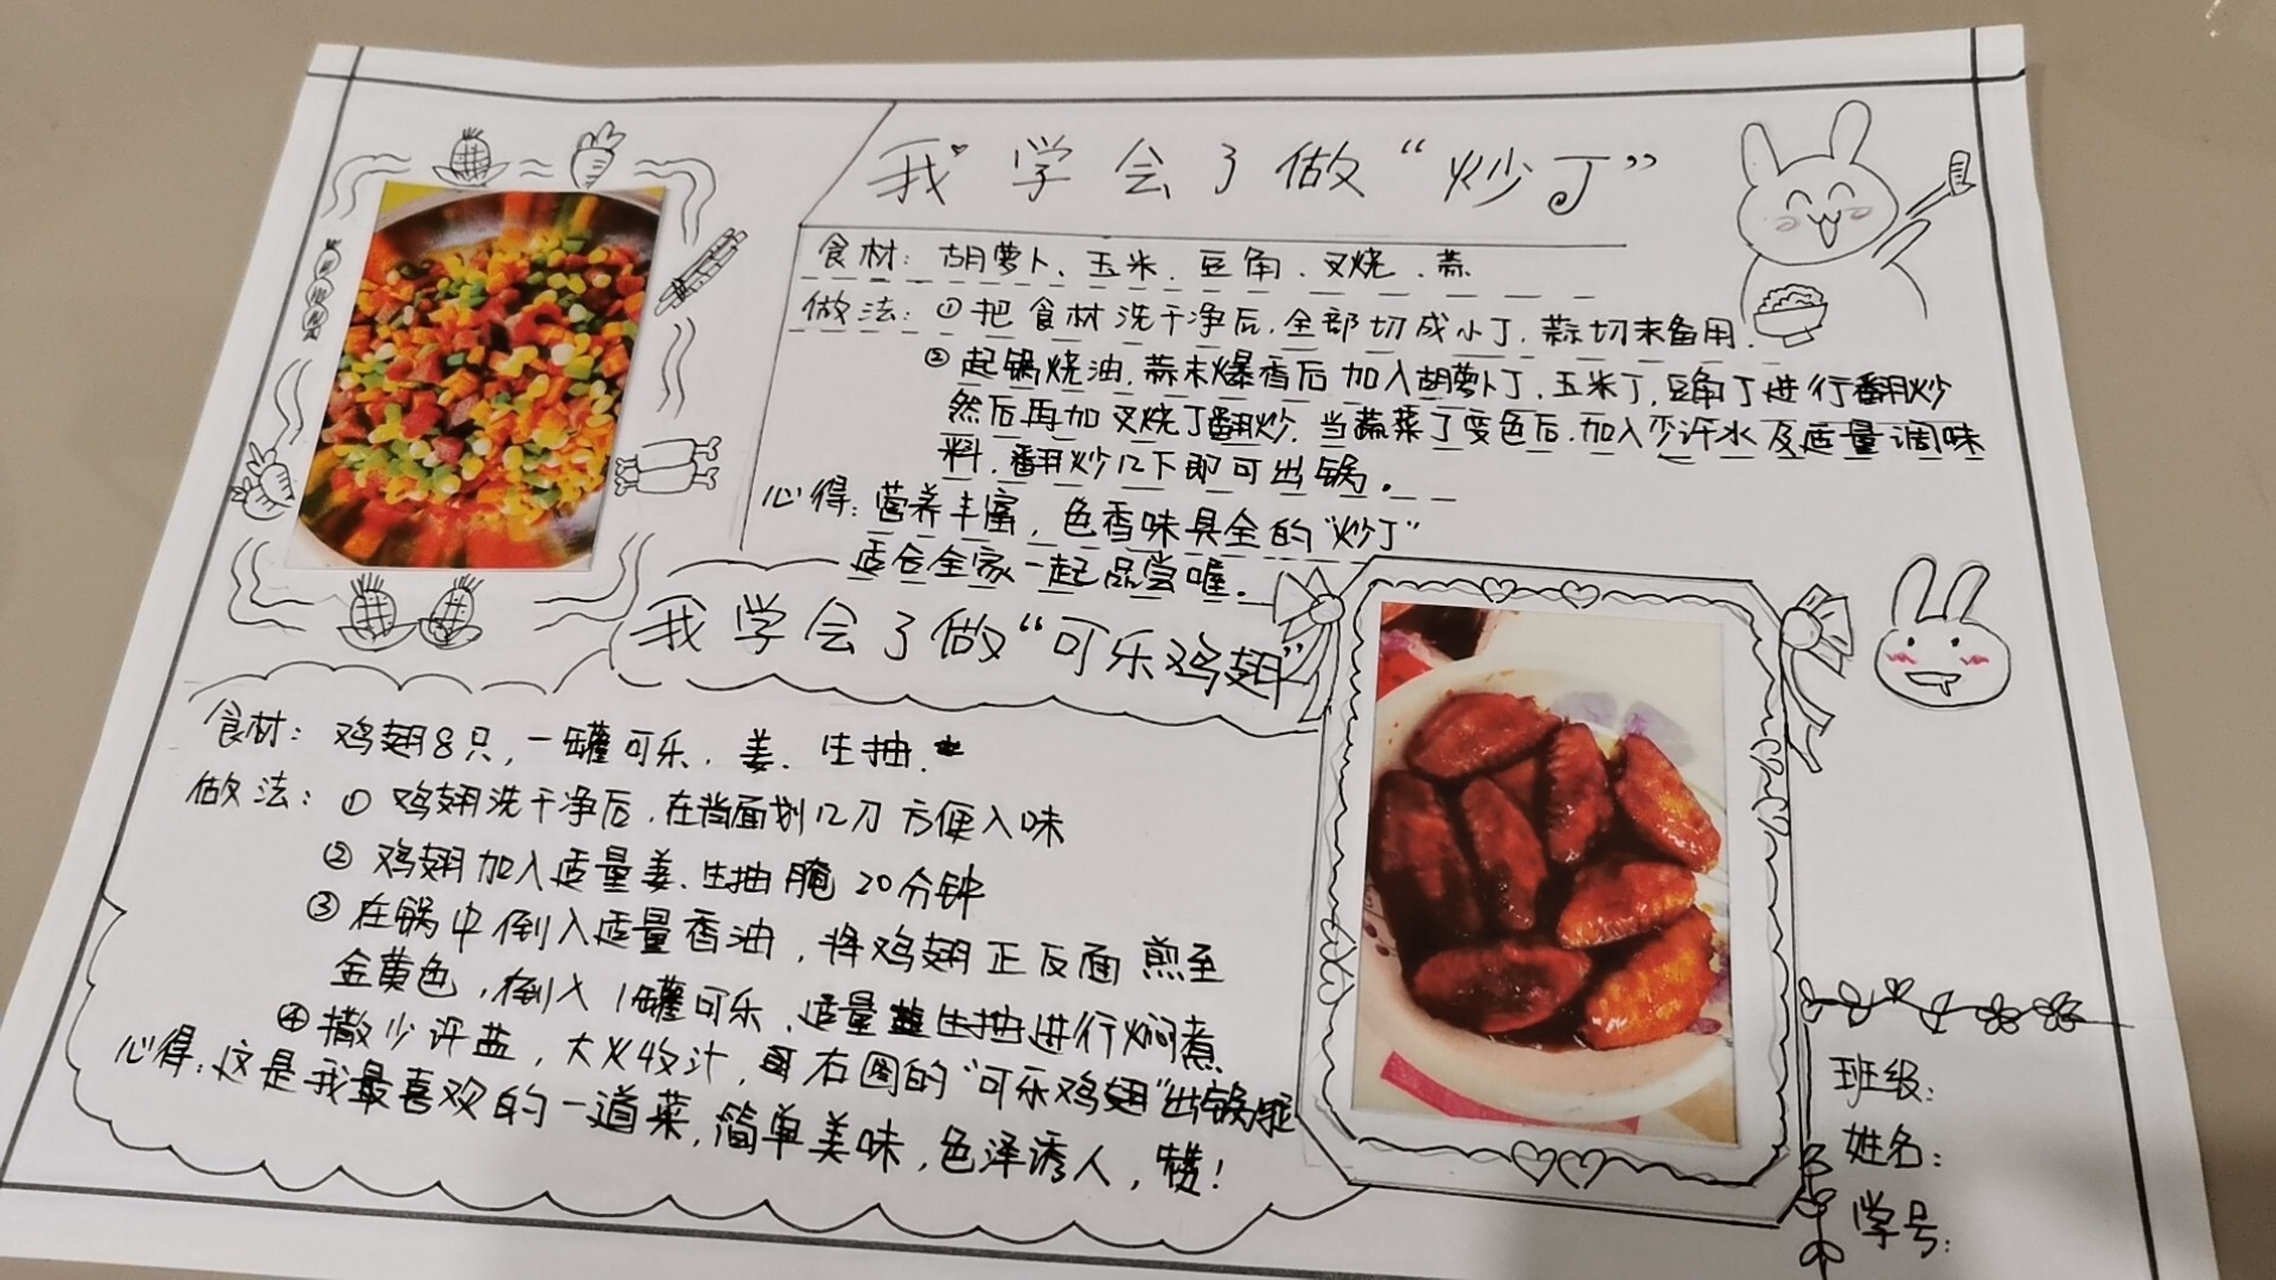 我学会了做“炒丁”
食材：胡萝卜、玉米、豆角、叉烧、蒜
做法：①把食材洗干净后，全部切成小丁，蒜切末备用.
②起锅烧油，蒜末爆香后加入胡萝卜丁、玉米丁，豆角丁进行翻炒
然后再加叉烧丁翻炒，当蔬菜丁变色后，加入少许水及适量调味
料，翻炒几下即可出锅。
心得：营养丰富，色香味具全的“炒丁”
适合全家一起品尝喔。
我学会了做“可乐鸡翅”
食材：鸡翅8只，一罐可乐、姜、生抽.
做法：①鸡翅洗干净后，在背面划几刀方便入味
②鸡翅加入适量姜、生抽腌20分钟
③在锅中倒入适量香油，将鸡翅正反面煎至
金黄色，倒入1罐可乐、适量生抽进行焖煮
④撒少许盐，大火收汁，右图的“可乐鸡翅”出锅啦
心得：这是我最喜欢的一道菜，简单美味，色泽诱人，赞！
班级：
姓名：
学号：